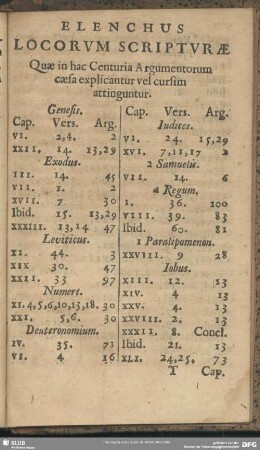 ELENCHUS
LOCORVM SCRIPTVRÆ
Quæ in hac Centuria Argumentorum
cæsa explicantur vel cursim
attinguntur.
Genesis.
Cap. Vers. Arg.
VI. 2,4. 2
XXII. 14. 13,29
Exodus.
III. 14. 45
VII. 1. 2
XVII. 7 30
Ibid. 15. 13,29
XXXIII. 13,14 47
Leviticus.
XI. 44. 3
XIX 30. 47
XXII. 33 97
Numeri.
XI. 4,5,6,10,13,18. 30
XXI. 5,6. 30
Deuteronomium.
IV. 35. 71
VI. 4 16
Cap. Vers. Arg.
Iudices.
VI. 24. 15,29
XVI. 7,11,17 2
2 Samuelis.
VII. 14. 6
Regum.
I. 36. 100
VIII. 39. 83
Ibid. 60. 81
1 Paralipomenon.
XXVIII. 9 28
Iobus.
XIII. 12. 13
XIV. 4 13
XXV. 4. 13
XXVIII. 2. 13
XXXII. 8. Concl.
Ibid. 21. 13
XLI. 24,25. 73
T Cap.
SLUB
DFG